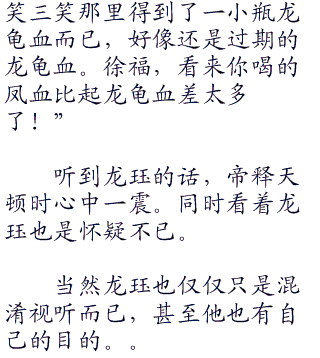 笑三笑那里得到了一小瓶龙
龟血而已，好像还是过期的
龙龟血。徐福，看来你喝的
凤血比起龙龟血差太多
了！”
听到龙珏的话，帝释天
顿时心中一震。同时看着龙
珏也是怀疑不已。
当然龙珏也仅仅只是混
淆视听而已，甚至他也有自
己的目的。。